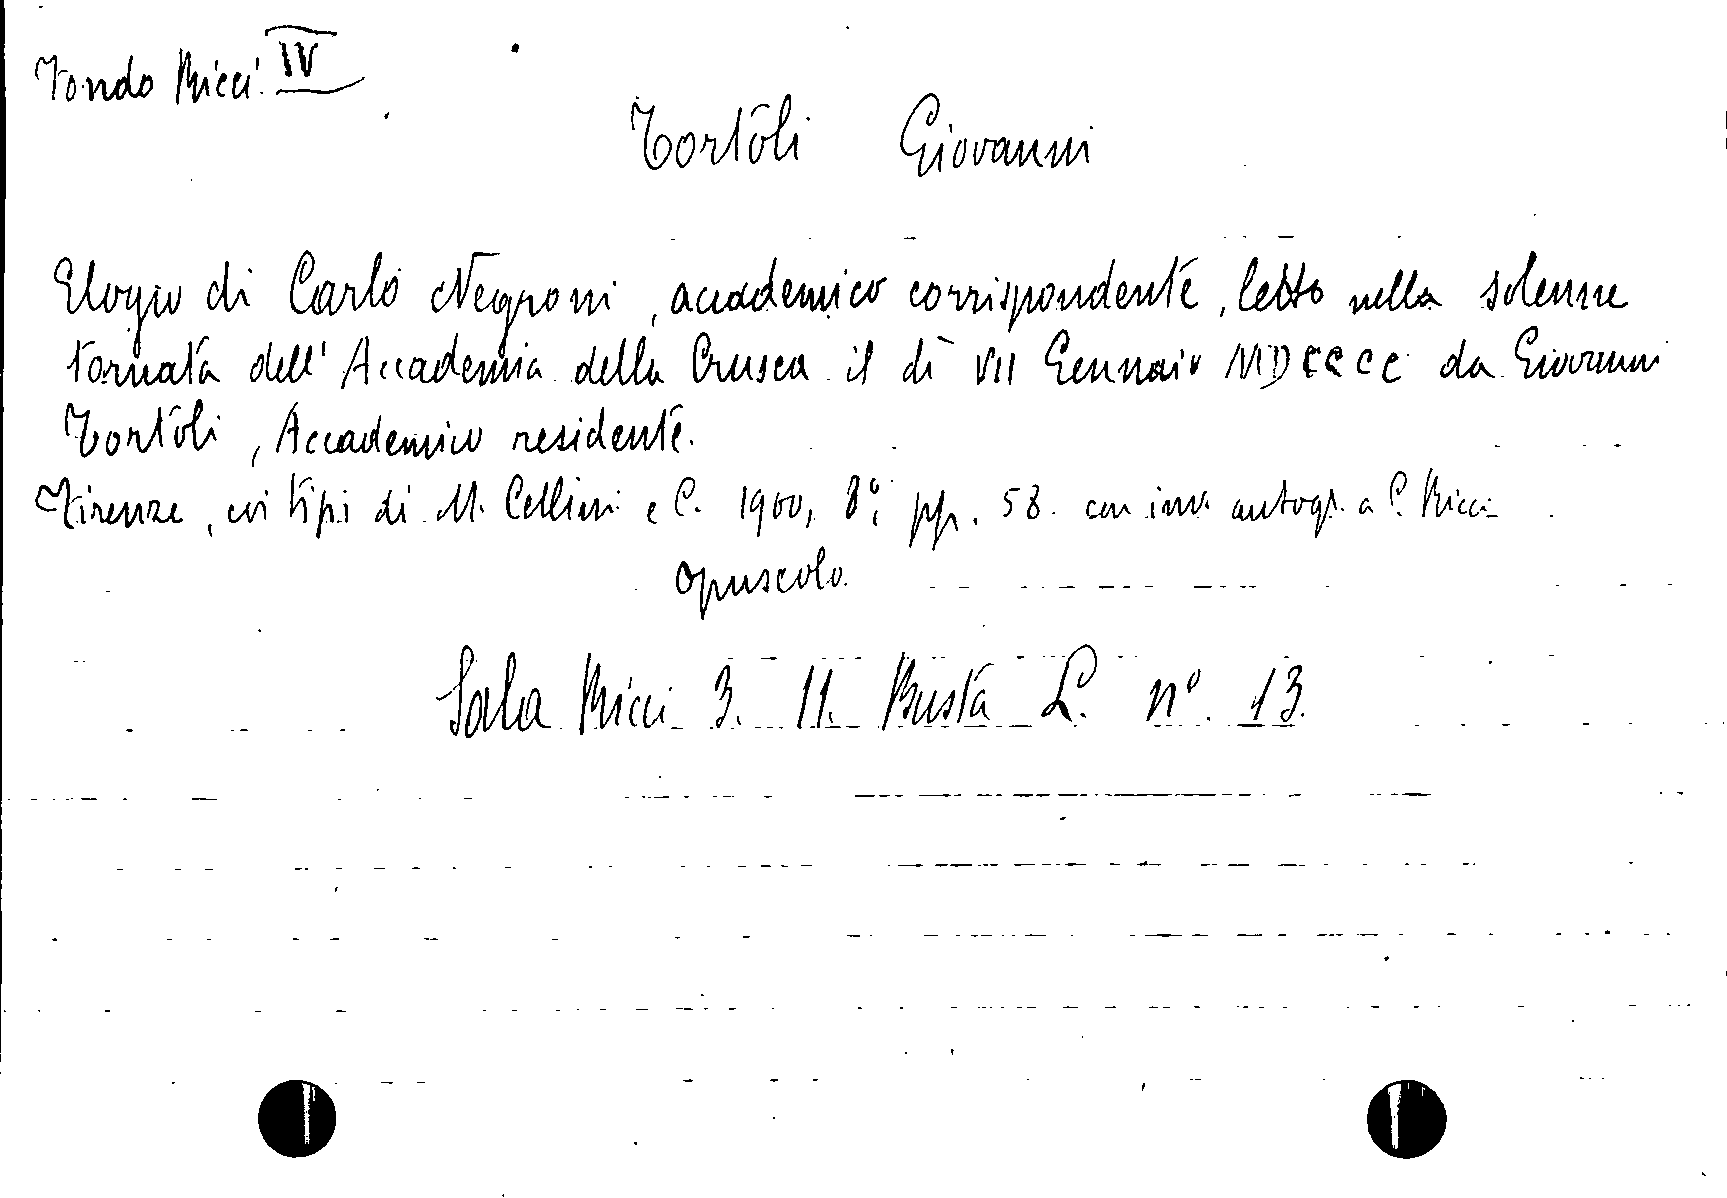 Fondo Ricci IV
Tortoli Giovanni
Elogio di Carlo Negroni, accademico corrispondente, letto nella solenne
tornata dell'Accademia della Crusca il dì VII Gennaio MDCCCC da Giovanni
Tortoli, Accademico residente.
Firenze, coi tipi di M. Cellini e C. 1900, 8°, pp. 58. con inv. autogr. a C. Ricci
opuscolo.
Sala Ricci 3. 11. Busta L. n° 13.